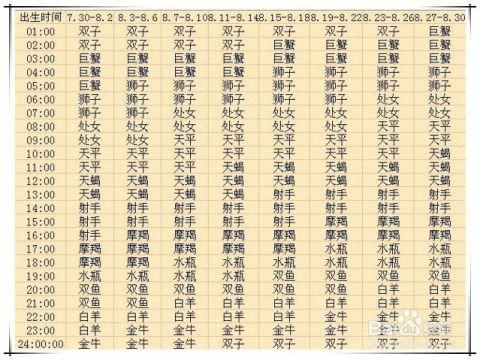 出生时间 7.30-8.2 8.3-8.6 8.7-8.10 8.11-8.14 8.15-8.18 8.19-8.22 8.23-8.26 8.27-8.30
01:00 双子 双子 双子 双子 双子 双子 双子 巨蟹
02:00 双子 双子 双子 双子 巨蟹 巨蟹 巨蟹 巨蟹
03:00 巨蟹 巨蟹 巨蟹 巨蟹 巨蟹 巨蟹 巨蟹 巨蟹
04:00 巨蟹 巨蟹 巨蟹 巨蟹 狮子 狮子 狮子 狮子
05:00 巨蟹 狮子 狮子 狮子 狮子 狮子 狮子 狮子
06:00 狮子 狮子 狮子 狮子 狮子 狮子 处女 处女
07:00 狮子 狮子 处女 处女 处女 处女 处女 处女
08:00 处女 处女 处女 处女 处女 处女 天平 天平
09:00 处女 处女 天平 天平 天平 天平 天平 天平
10:00 天平 天平 天平 天平 天平 天平 天平 天蝎
11:00 天平 天平 天平 天蝎 天蝎 天蝎 天蝎 天蝎
12:00 天蝎 天蝎 天蝎 天蝎 天蝎 天蝎 天蝎 天蝎
13:00 天蝎 天蝎 天蝎 天蝎 射手 射手 射手 射手
14:00 射手 射手 射手 射手 射手 射手 射手 射手
15:00 射手 射手 射手 射手 射手 摩羯 摩羯 摩羯
16:00 射手 摩羯 摩羯 摩羯 摩羯 摩羯 摩羯 摩羯
17:00 摩羯 摩羯 摩羯 摩羯 摩羯 水瓶 水瓶 水瓶
18:00 摩羯 摩羯 水瓶 水瓶 水瓶 水瓶 水瓶 水瓶
19:00 水瓶 水瓶 水瓶 水瓶 双鱼 双鱼 双鱼 双鱼
20:00 双鱼 双鱼 双鱼 双鱼 双鱼 双鱼 白羊 白羊
21:00 双鱼 双鱼 白羊 白羊 白羊 白羊 白羊 白羊
22:00 白羊 白羊 白羊 白羊 白羊 金牛 金牛 金牛
23:00 白羊 金牛 金牛 金牛 金牛 金牛 金牛 金牛
24:00:00 金牛 金牛 金牛 双子 双子 双子 双子 双子